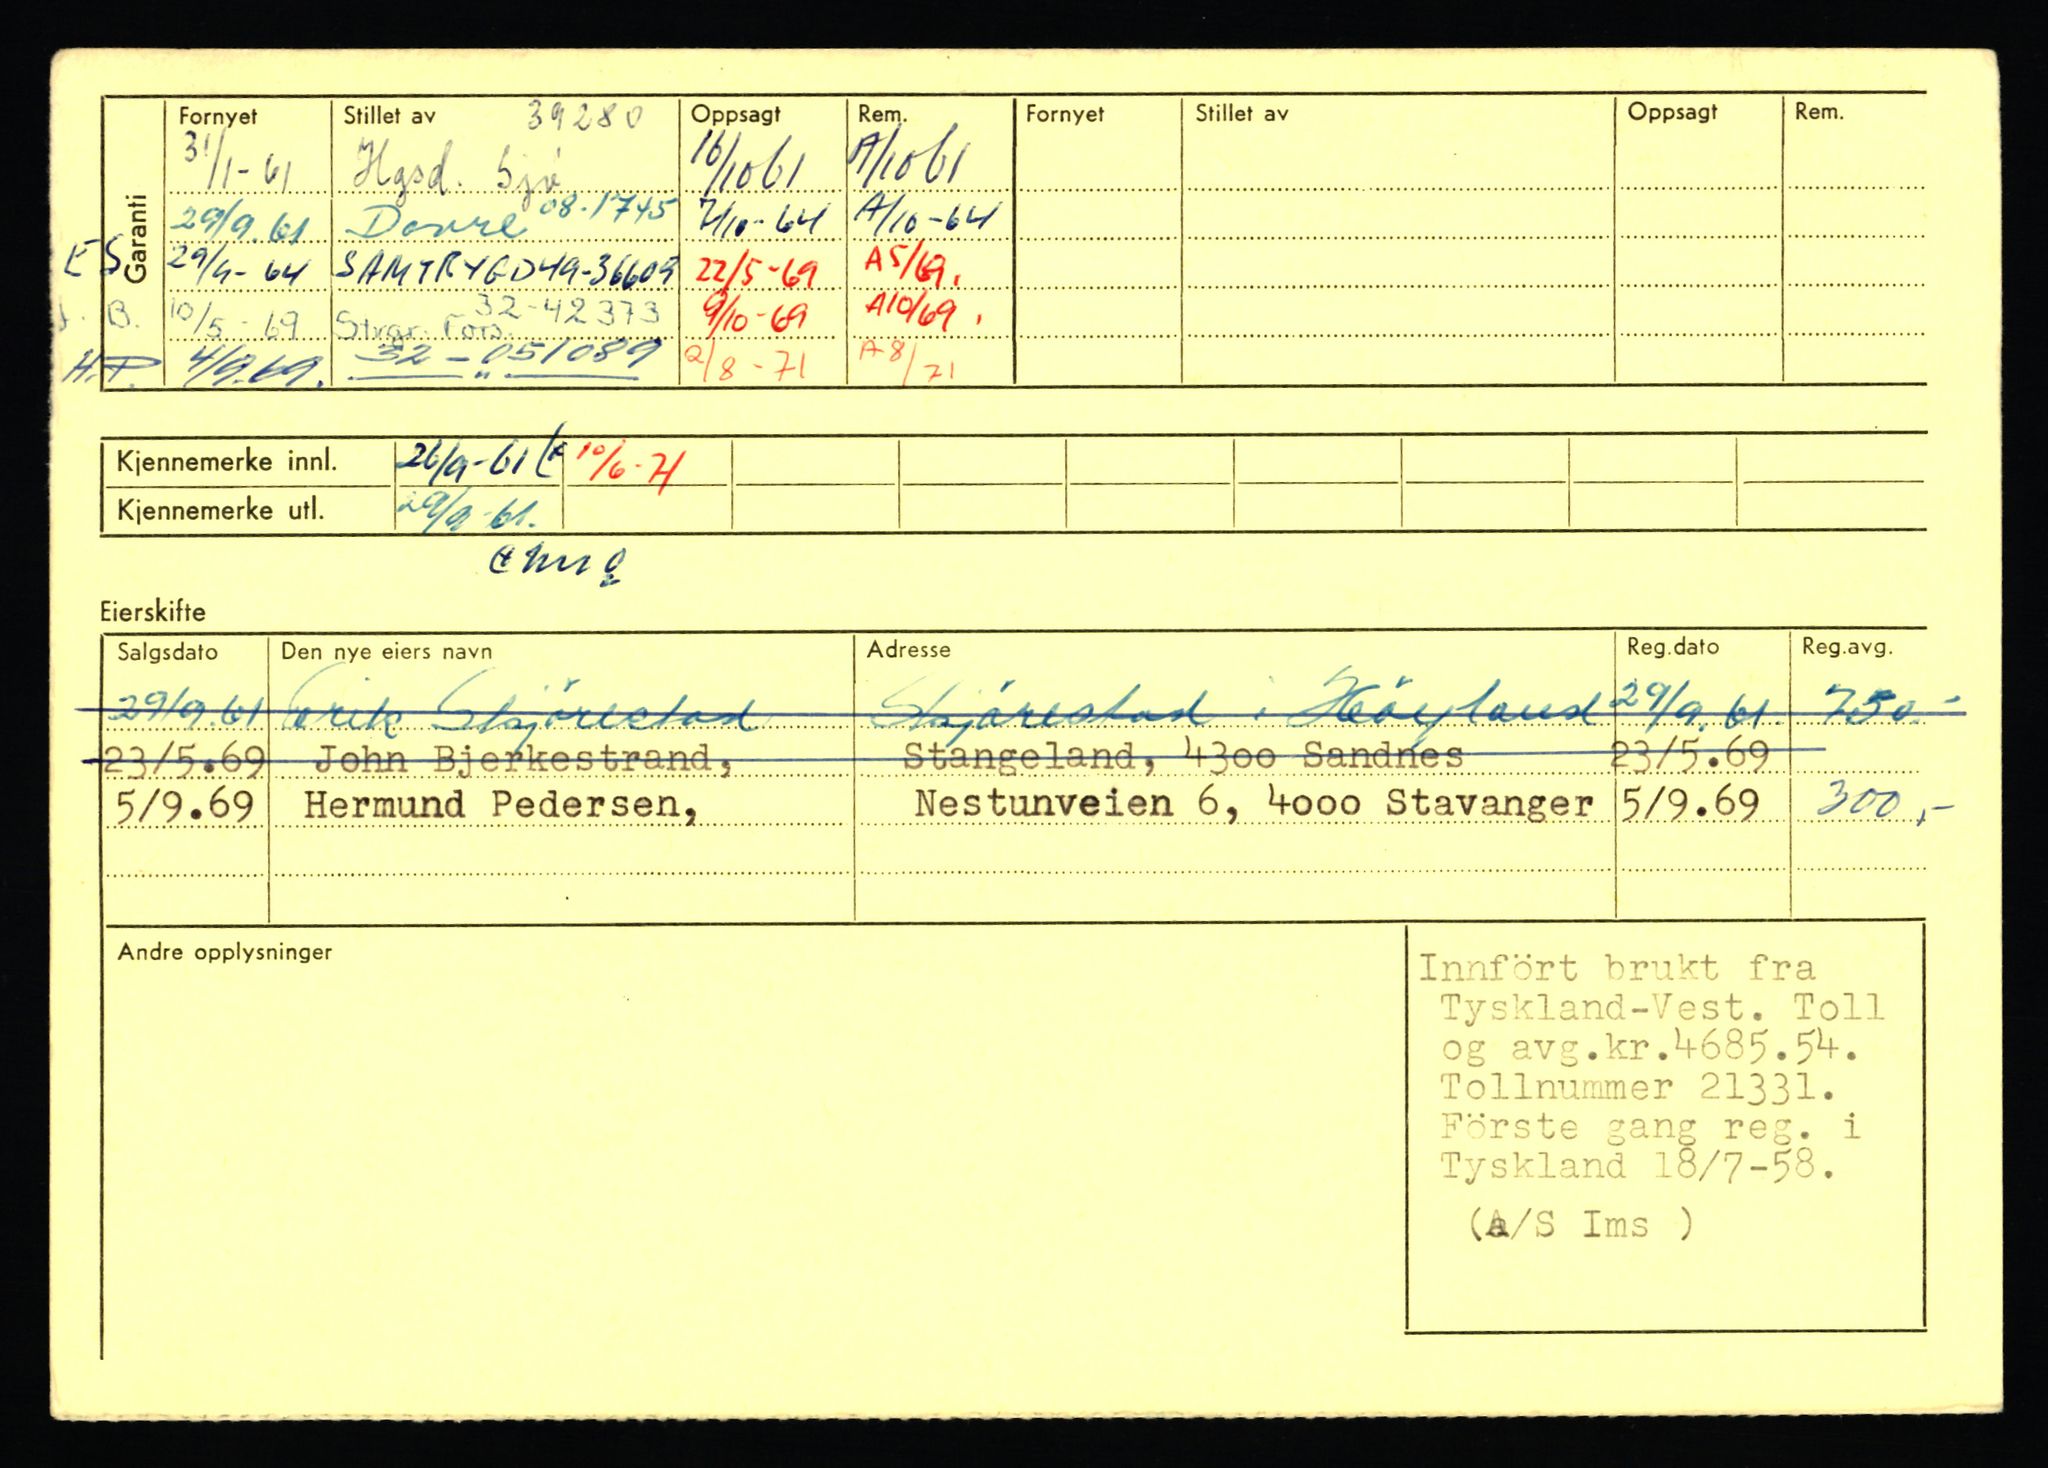 Garanti
Fornyet Stillet av 39280 Oppsagt Rem. Fornyet Stillet av Oppsagt Rem.
31/1-61 Hgsd. Sjø 16/10 61 A/10 61
29/9.61 Dovre 08-1745 7/10-64 A/10-64
E S 29/9-64 SAMTRYGD 49-36609 22/5-69 A5/69.
B. 10/5-69 32-42373 9/10-69 A10/69.
H.P. 4/9.69. 32-051089 2/8-71 A8/71
Kjennemerke innl. 26/9-61 10/6-71
Kjennemerke utl. 29/9-61.
Eierskifte
Salgsdato Den nye eiers navn Adresse Reg.dato Reg.avg.
29/9.61 Erik Skjörestad Skjörestad i Höyland 29/9.61. 750.-
23/5.69 John Bjerkestrand, Stangeland, 4300 Sandnes 23/5.69
5/9.69 Hermund Pedersen, Nestunveien 6, 4000 Stavanger 5/9.69 300,-
Andre opplysninger
Innfört brukt fra
Tyskland-Vest. Toll
og avg.kr.4685.54.
Tollnummer 21331.
Förste gang reg. i
Tyskland 18/7-58.
(A/S Ims )